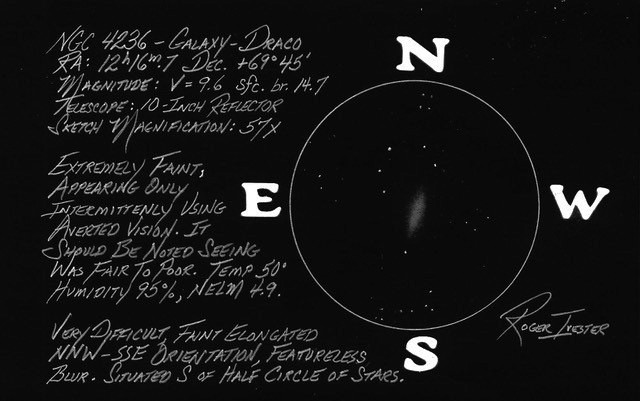 NGC 4236 - GALAXY - DRACO
RA: 12h16m.7 DEC. +69° 45'
MAGNITUDE: V = 9.6 sfc. br. 14.7
TELESCOPE: 10-INCH REFLECTOR
SKETCH MAGNIFICATION: 57X
EXTREMELY FAINT,
APPEARING ONLY
INTERMITTENLY USING
AVERTED VISION. IT
SHOULD BE NOTED SEEING
WAS FAIR TO POOR. TEMP 50°
HUMIDITY 95%, NELM 4.9.
VERY DIFFICULT, FAINT ELONGATED
NNW-SSE ORIENTATION, FEATURELESS
BLUR. SITUATED S OF HALF CIRCLE OF STARS.
N
E
W
S
ROGER IVESTER